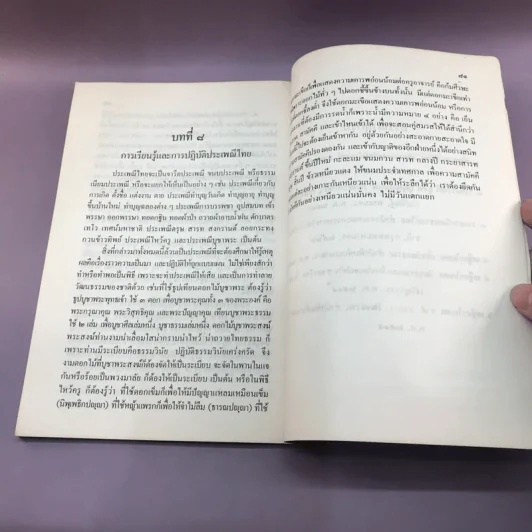 บทที่ ๘
การเรียนรู้และการปฏิบัติประเพณีไทย
ประเพณีไทยจะเป็นจารีตประเพณี ขนบประเพณี หรือธรรม
เนียมประเพณี หรือจะแยกให้เห็นเป็นอย่าง ๆ เช่น ประเพณีเกี่ยวกับ
การเกิด ตั้งชื่อ แต่งงาน ตาย ประเพณีทำบุญวันเกิด ทำบุญอายุ ทำบุญ
ขึ้นบ้านใหม่ ทำบุญฉลองต่าง ๆ ประเพณีการบรรพชา อุปสมบท เข้า
พรรษา ออกพรรษา ทอดกฐิน ทอดผ้าป่า ถวายผ้าอาบน้ำฝน ตักบาตร
เทโว เทศน์มหาชาติ ประเพณีตรุษ สารท สงกรานต์ ลอยกระทง
กวนข้าวทิพย์ ประเพณีไหว้ครู และประเพณีบูชาพระ เป็นต้น
สิ่งที่กล่าวมาทั้งหมดนี้ล้วนเป็นประเพณีที่จะต้องศึกษาให้รู้เหตุ
ผลคือเรื่องราวความเป็นมา และปฏิบัติให้ถูกแบบแผน ไม่ใช่เพียงสักว่า
ทำหรือทำพอเป็นพิธี เพราะจะทำประเพณีให้เสีย และเป็นการทำลาย
วัฒนธรรมของชาติด้วย เช่นที่ใช้ธูปเทียนดอกไม้บูชาพระ ต้องรู้ว่า
ธูปบูชาพระพุทธเจ้า ใช้ ๓ ดอก เพื่อบูชาพระคุณทั้ง ๓ ของพระองค์ คือ
พระกรุณาคุณ พระวิสุทธิคุณ และพระปัญญาคุณ เทียนบูชาพระธรรม
ใช้ ๒ เล่ม เพื่อบูชาศีลเล่มหนึ่ง บูชาธรรมเล่มหนึ่ง ดอกไม้บูชาพระสงฆ์
พระสงฆ์ท่านงามน่าเลื่อมใสน่ากราบน่าไหว้ น่าถวายไทยธรรม ก็
เพราะท่านมีระเบียบคือธรรมวินัย ปฏิบัติธรรมวินัยเคร่งครัด จึง
งามดอกไม้ที่บูชาพระสงฆ์ก็ต้องจัดให้เป็นระเบียบ จะจัดในพานในแจ
กันหรือร้อยเป็นพวงมาลัย ก็ต้องให้เป็นระเบียบ เป็นต้น หรือในพิธี
ไหว้ครู ก็ต้องรู้ว่า ที่ใช้ดอกเข็มก็เพื่อให้มีปัญญาแหลมเหมือนเข็ม
(นิพฺเพธิกปญฺญา) ที่ใช้หญ้าแพรกก็เพื่อให้จำไม่ลืม (ธารณปญฺญา) ที่ใช้
๘๑
มะเขือก็เพื่อแสดงความเคารพอ่อนน้อมต่อครูอาจารย์ คือก้มศีรษะ
ดอกไม้ทั่ว ๆ ไปดอกชี้ขึ้นข้างบนทั้งนั้น มีแต่ดอกมะเขือเท่า
ลงต่ำ จึงใช้ดอกมะเขือแสดงความเคารพอ่อนน้อม หรือการ
ที่ต้องมีการรดน้ำก็เพราะน้ำมีความหมาย ๔ อย่าง คือ เย็น
สามัคคี และเข้าไหนเข้าได้ เพื่อจะสอนคู่สมรสให้ได้สำนึกว่า
จะต้องเป็นเข้าหากัน อยู่ด้วยกันอย่างสะอาดกายสะอาดใจ มี
ปรองดองกัน และเข้ากับญาติของอีกฝ่ายหนึ่งได้อย่างสนิท
ขึ้นปีใหม่ กะละแม ขนมกวน สารท กลางปี กระยาสารท
จีวรเหนียวแดง ให้ขนมประจำเทศกาล เพื่อความสามัคคี
อย่างเกาะกันเหนียวแน่น เพื่อให้ระลึกได้ว่า เราต้องยึดกัน
อย่างเหนียวแน่นมั่นคง ไม่มีวันแตกแยก